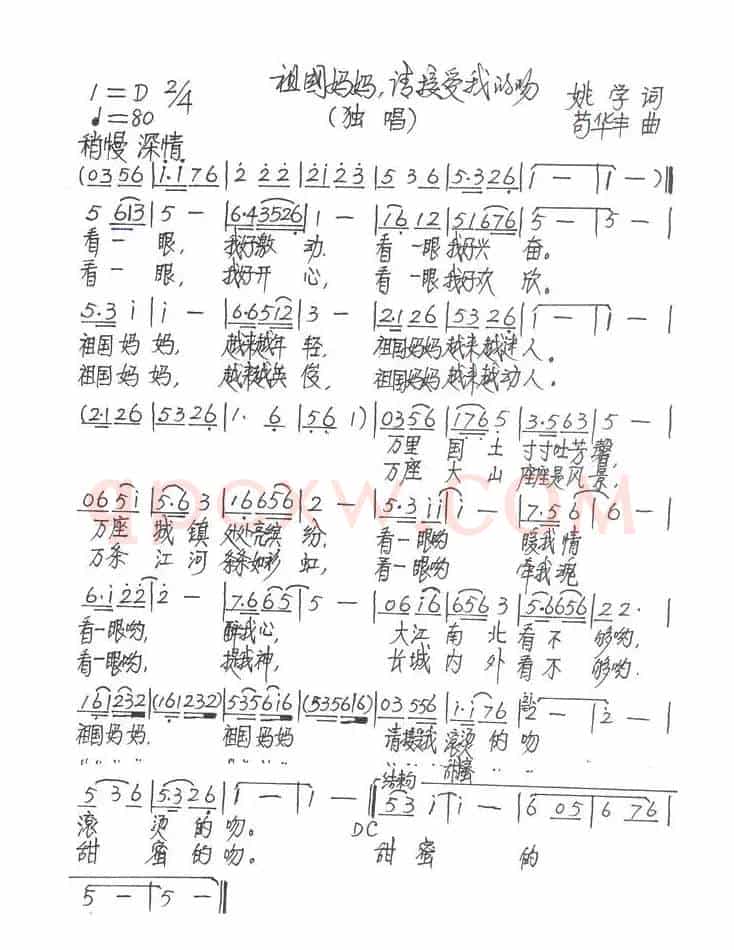 祖国妈妈,请接受我的吻
(独 唱)
1=D 2/4
♩=80
姚 学 词
苟华丰 曲
稍慢 深情
(0356|i·i76|2 22|2123|5 36|5·326|i —|i —)‖
5 613|5 —|6·43526|1 —|i6 12|51676|5 —|5 —|
看一 眼, 我好激 动. 看 一眼 我好兴 奋。
看一 眼, 我好开 心, 看 一眼 我好欢 欣.
5·3 i|i —|6·6512|3 —|2·126|5326|i —|i —|
祖国 妈 妈, 越来越年 轻, 祖国妈妈越来越迷 人。
祖国 妈 妈, 越来越英 俊, 祖国妈妈越来越动 人.
(2·126|5326|1· 6|56 1)|0356|176 5|3·563|5 —|
万里 国 土 寸寸吐芳 馨,
万座 大 山 座座是风 景,
065i|5·6 3|16656|2 —|5·3 ii|i —|7·5 6|6 —|
万座 城 镇 处处亮缤 纷, 看一眼哟 暖我情
万条 江 河 条条如彩 虹, 看一眼哟 牵我魂
6·i 22|2 —|7·665|5 —|06i6|656 3|5·6656|22·|
看一眼哟, 醉我心, 大江 南 北 看 不 够哟,
看一眼哟, 提我神, 长城 内 外 看 不 够哟.
16i232|(161232)|5356i6|(535616)|03 556|i·i76|2 —|2 —|
祖国妈妈. 祖国妈妈 请接受我 滚烫 的 吻
" " " " " " " " " " " 甜蜜 " "
5 36|5·326|i —|i —‖53 i|i —|6 05|6 76|
结构
滚 烫 的 吻。 DC
甜 蜜 的 吻。 甜 蜜 的
5 —|5 —‖
qpoxw.COM